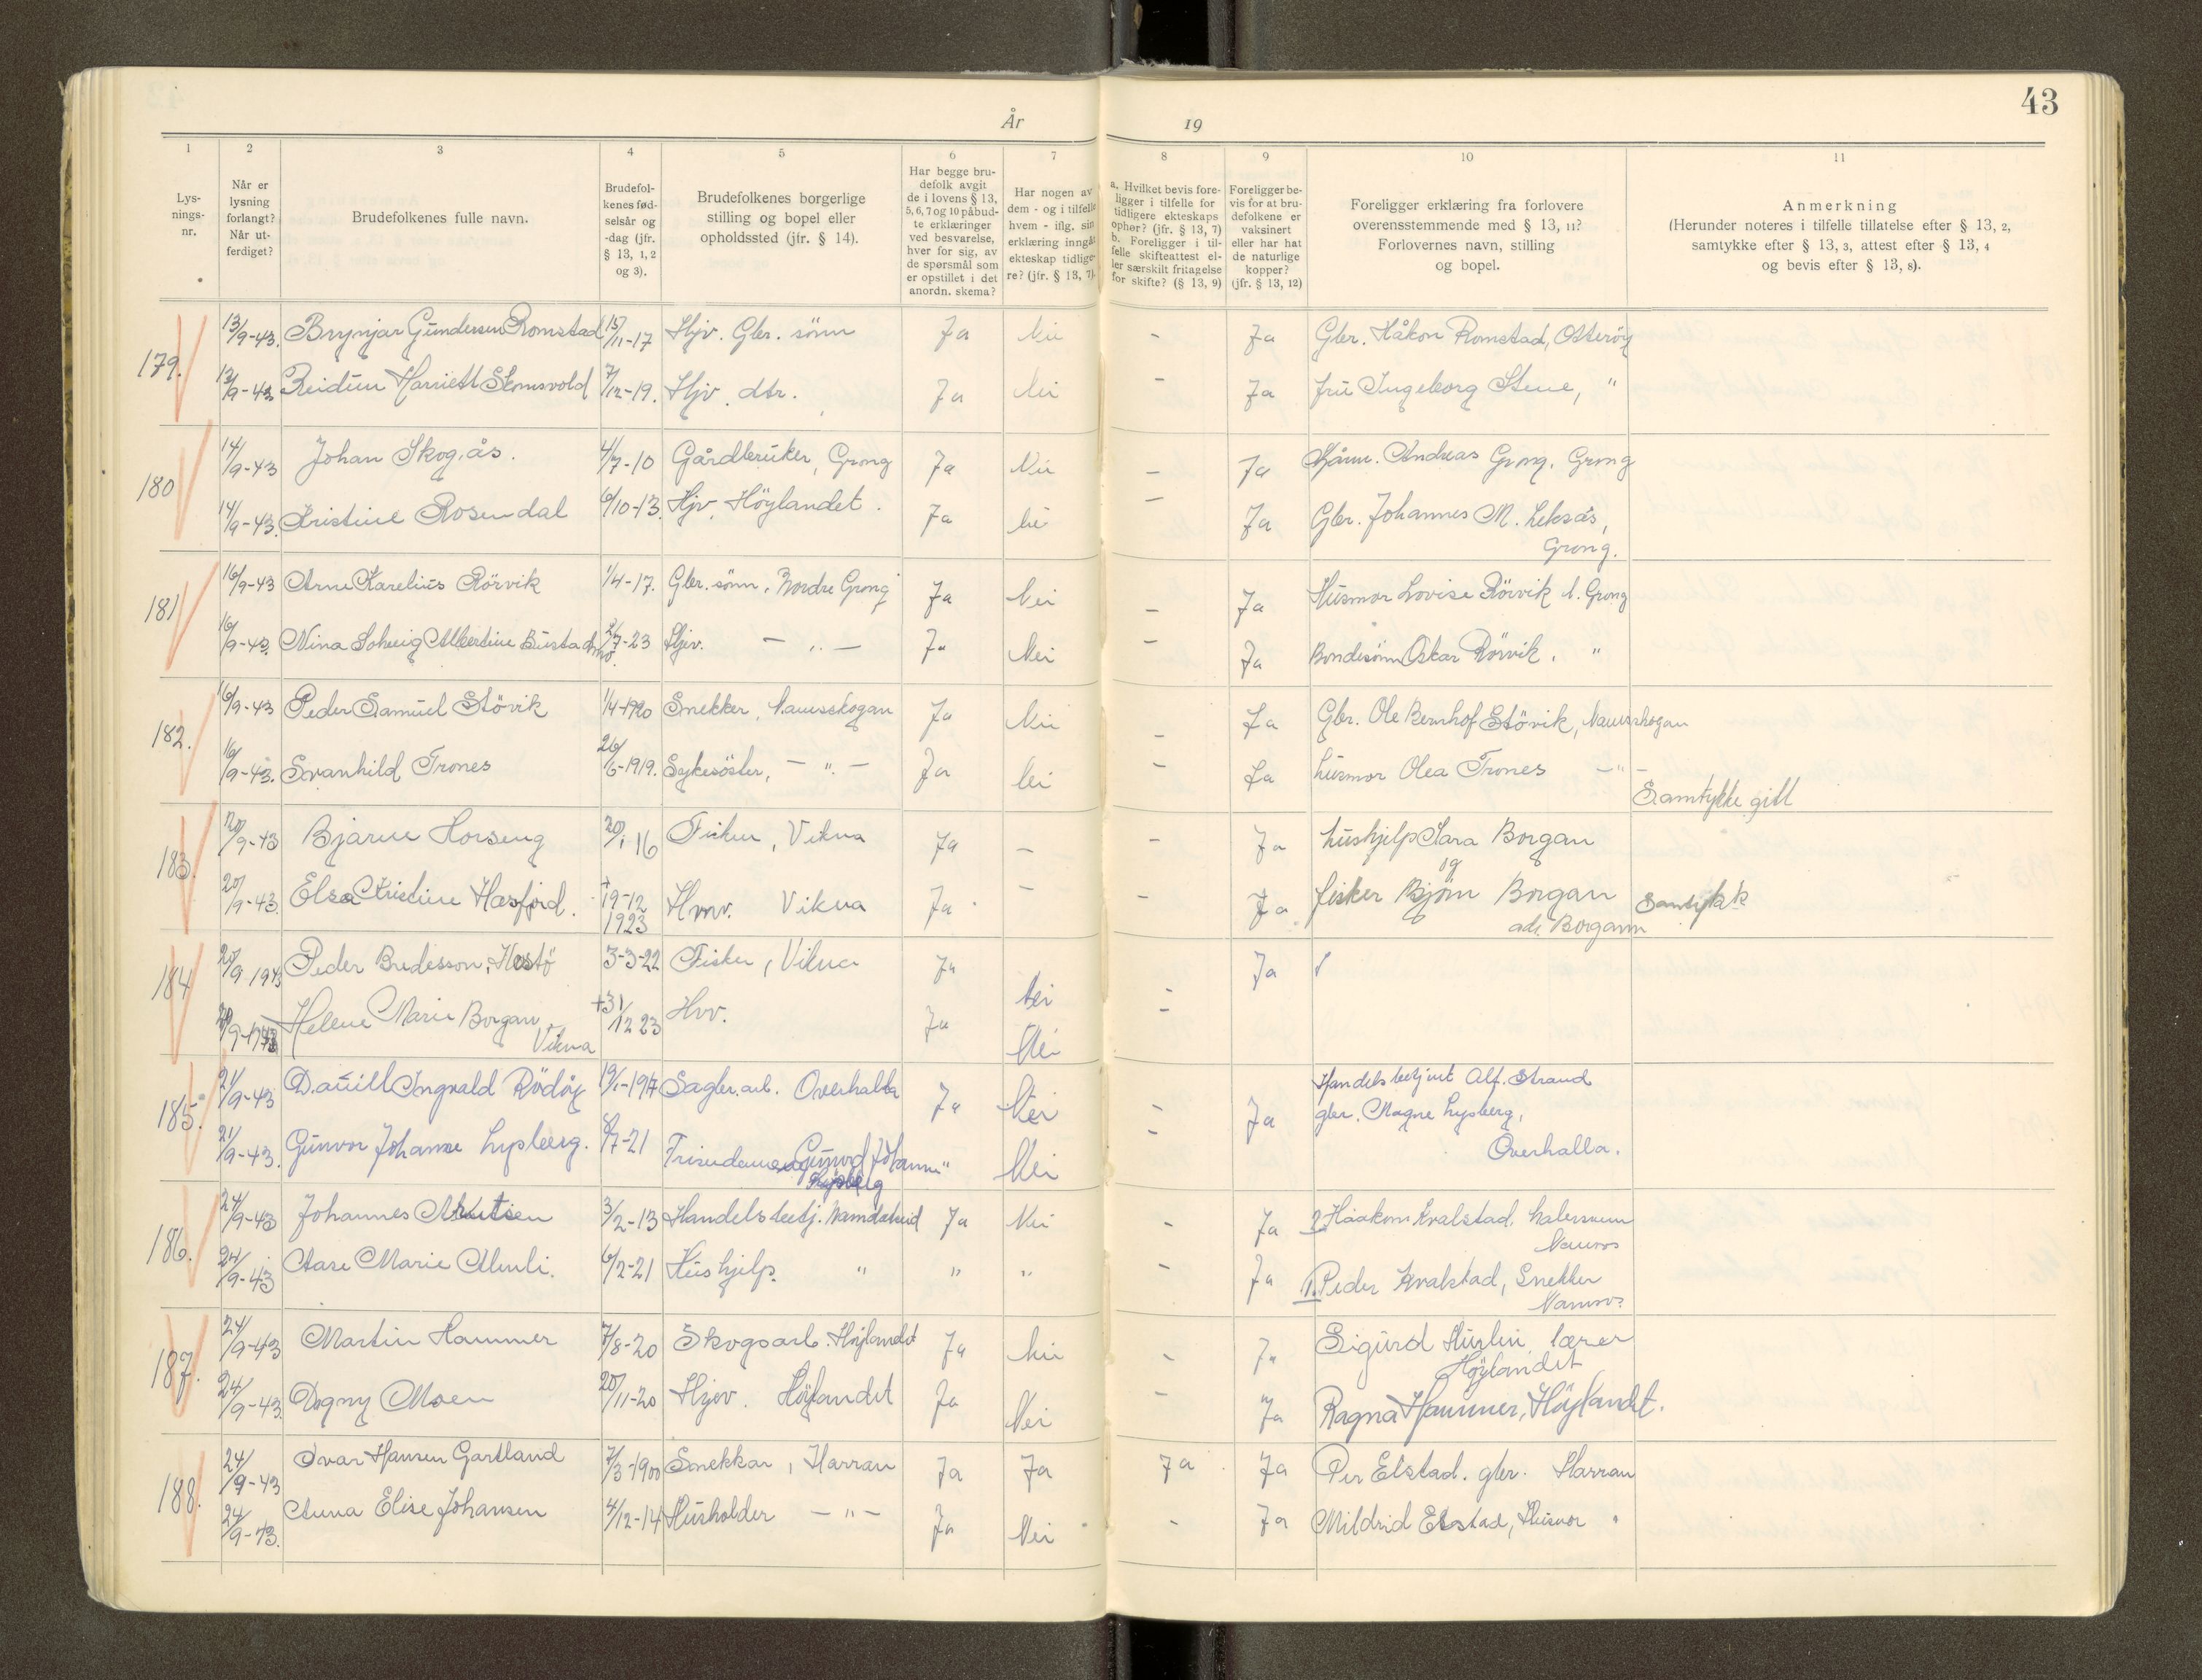 43
År 19
1 2 3 4 5 6 7 8 9 10 11
Lys-
nings-
nr.
Når er
lysning
forlangt?
Når ut-
ferdiget?
Brudefolkenes fulle navn.
Brudefol-
kenes fød-
selsår og
-dag (jfr.
§ 13, 1, 2
og 3).
Brudefolkenes borgerlige
stilling og bopel eller
opholdssted (jfr. § 14).
Har begge bru-
defolk avgit
de i lovens § 13,
5, 6, 7 og 10 påbud-
te erklæringer
ved besvarelse,
hver for sig, av
de spørsmål som
er opstillet i det
anordn. skema?
Har nogen av
dem - og i tilfelle
hvem - iflg. sin
erklæring inngåt
ekteskap tidlige-
re? (jfr. § 13, 7).
a. Hvilket bevis fore-
ligger i tilfelle for
tidligere ekteskaps
ophør? (jfr. § 13, 7)
b. Foreligger i til-
felle skifteattest el-
ler særskilt fritagelse
for skifte? (§ 13, 9)
Foreligger be-
vis for at bru-
defolkene er
vaksinert
eller har hat
de naturlige
kopper?
(jfr. § 13, 12)
Foreligger erklæring fra forlovere
overensstemmende med § 13, 11?
Forlovernes navn, stilling
og bopel.
Anmerkning
(Herunder noteres i tilfelle tillatelse efter § 13, 2,
samtykke efter § 13, 3, attest efter § 13, 4
og bevis efter § 13, 8).
179. 13/9-43. Brynjar Gundersen Romstad 15/11-17 Hjv. Gbr. sönn Ja Nei - Ja Gbr. Håkon Romstad, Otteröy
13/9-43 Reidun Harriett Skomsvold 7/12-19. Hjv. dtr. Ja Nei - Ja fru Ingeborg Stene, "
180 14/9-43 Johan Skogås. 4/7-10 Gårdbruker, Grong Ja Nei - Ja Andreas Grong, Grong
14/9-43. Kristine Rosendal 6/10-13. Hjv. Höylandet. Ja Nei - Ja Gbr. Johannes M. Leksås,
Grong.
181 16/9-43 Arne Karelius Rörvik 1/4-17. Gbr. sönn, Nordre Grong Ja Nei - Ja Husmor Lovise Rörvik N. Grong
16/9-43. Nina Solveig Albertine Bustadmo. 7-23 Hjv. - " - Ja Nei - Ja Bondesönn Oskar Rörvik, "
182. 16/9-43 Peder Samuel Stövik 1/4-1920 Snekker, Namsskogan Ja Nei - Ja Gbr. Ole Bernhof Stövik, Namsskogan
16/9-43. Svanhild Trones 26/6-1919. Sykesöster, - " - Ja Nei - Ja husmor Olea Trones - " -
Samtykke gitt
183. 20/9-43 Bjarne Horseng 20/1 16 Fisker, Vikna Ja - - Ja hushjelp Sara Borgan
og
20/9-43. Elsa Kristine Hasfjord. + 19-12 1923 Hmv. Vikna Ja - - Ja fisker Björn Borgan Samtykk
adr. Borgann
184 20/9 1943 Peder Bredesson, 3-3-22 Fisker, Vikna Ja Nei - Ja
20/9-1943 Helene Marie Borgan +31/12 23 Hvv. Ja Nei -
Vikna
185. 21/9-43 Ingvald Rödöy 19/1-1917 Sagbr. arb. Overhalla Ja Nei - Ja Handelsbetjent Alf. Strand
gbr. Magne Lysberg,
21/9-43. Gunvor Johanne Lysberg. 8/7-21 Frisørdame " Nei - Overhalla.
186. 24/9-43 Johannes 3/2-13 Handelsbetj. Namdalseid Ja Nei - Ja 2. Haakon Kvalstad,
Namsos
24/9-43 Aase Marie Almli. 6/2-21 Hushjelp. " " " - Ja 1. Peder Kvalstad, Snekker
Namsos
187. 24/9-43 Martin Hammer 7/8-20 Skogsarb. Höylandet Ja Nei - Ja Sigurd lærer
Höylandet
24/9-43. Dagny Moen 20/11-20 Hjv. Höylandet Ja Nei - Ja Ragna Hammer, Höylandet.
188. 24/9-43 Ivar Hansen Gartland 7/3-1900 Snekkar, Harran Ja Ja Ja Ja Per Elstad. gbr. Harran
24/9-43. Anna Elise Johansen 4/12-14 Husholder - " - Ja Nei - Ja Mildrid Elstad, Husmor "